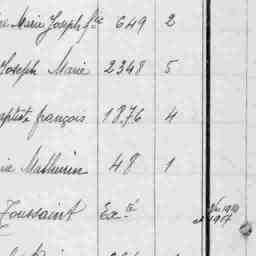 Marie Joseph fse 649 2
Joseph Marie 2348 5
aptiste françois 1876 4
Mathurin 48 1
Toussaint Exté
1917